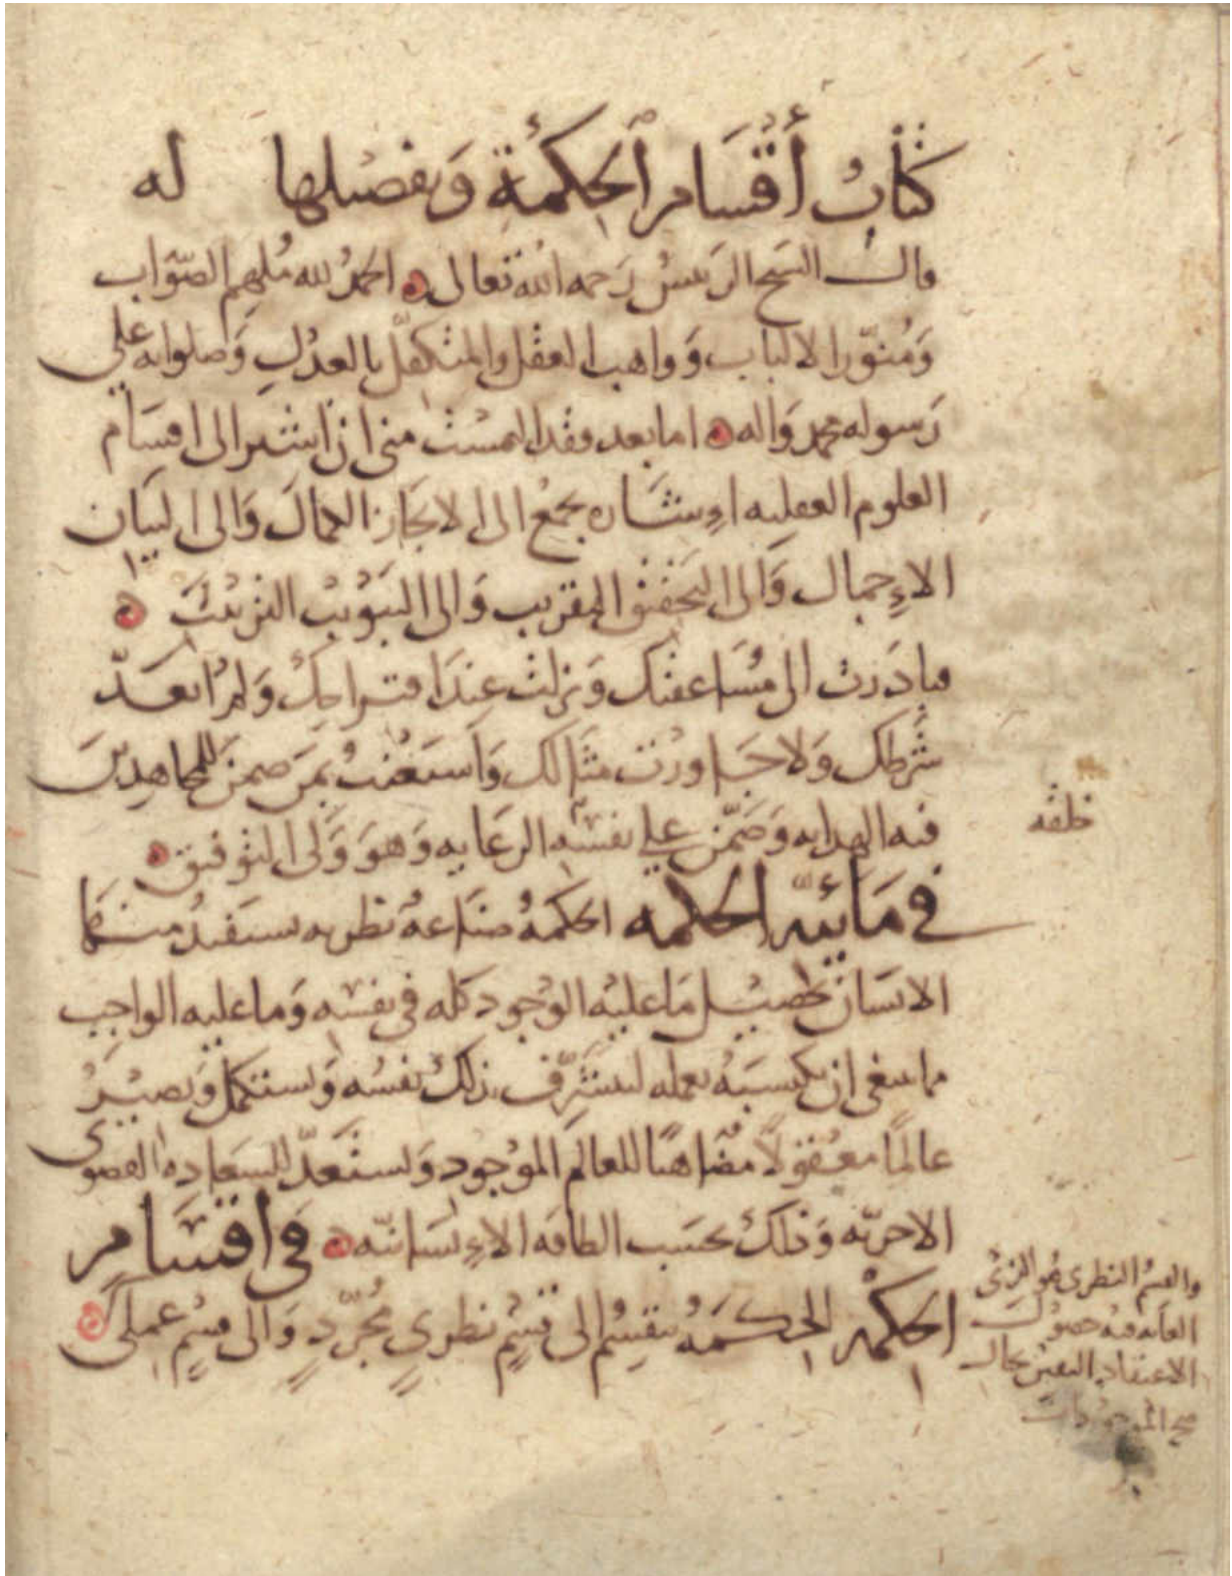 كتاب أقسام الحكمة وتفصيلها له
قال الشيخ الرئيس رحمه الله تعالى الحمد لله ملهم الصواب
ومنور الالباب وواهب العقل والمتكفل بالعدل وصلواته على
رسوله محمد واله اما بعد فقد التمست منى ان اشير الى اقسام
العلوم العقلية اشارة تجمع الى الايجاز الكمال والى البيان
الاجمال والى التحقيق التقريب والى التبويب الترتيب
فبادرت الى مساعفتك ونزلت عند اقتراحك ولم اتعد
شرطك ولا جاورت مثالك واستعنت بمن ضمن للمجاهدين
فيه الهداية وضمن على نفسه الرعاية وهو ولى التوفيق
خلقه
في مائية الحكمة الحكمة صناعة نظرية يستفيد منها
الانسان تحصيل ما عليه الوجود كله في نفسه وما عليه الواجب
مما ينبغى ان يكسبه بعمله لتتشرف بذلك نفسه وتستكمل وتصير
عالما معقولا مضاهيا للعالم الموجود وتستعد للسعادة القصوى
الاخرية وذلك بحسب الطاقة الانسانية في أقسام
الحكمة الحكمة تنقسم الى قسم نظري مجرد والى قسم عملى
والقسم النظرى هو الذى
الغاية فيه حصول
الاعتقاد اليقين بحال
الموجودات